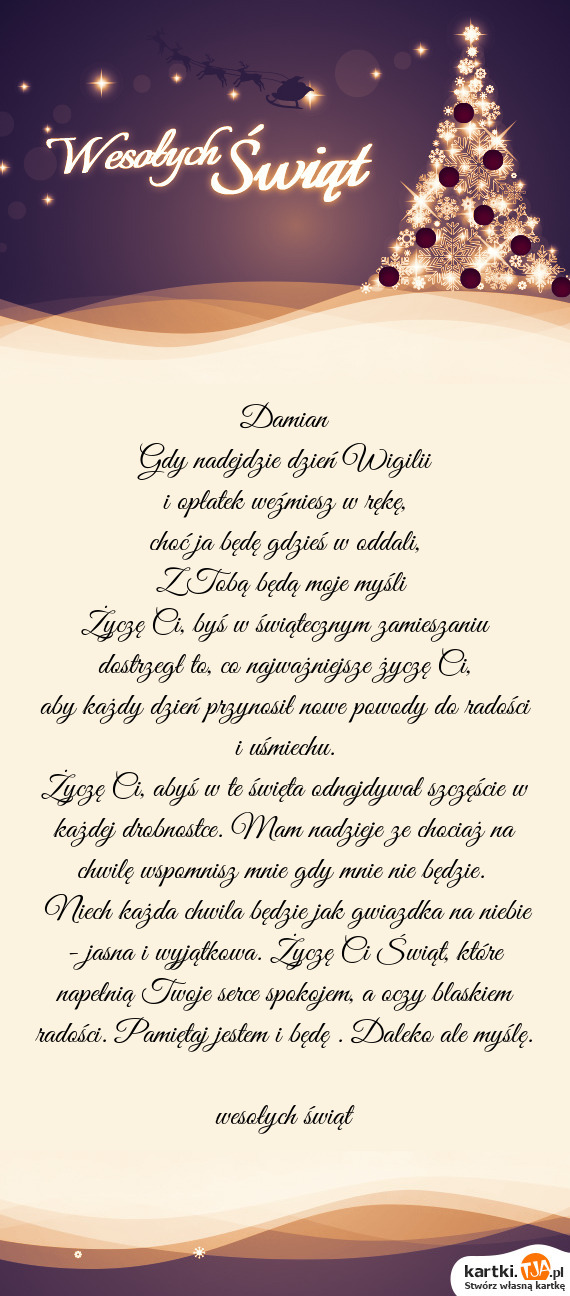 Wesołych Świąt
Damian
Gdy nadejdzie dzień Wigilii
i opłatek weźmiesz w rękę,
choć ja będę gdzieś w oddali,
Z Tobą będą moje myśli
Życzę Ci, byś w świątecznym zamieszaniu
dostrzegł to, co najważniejsze życzę Ci,
aby każdy dzień przynosił nowe powody do radości
i uśmiechu.
Życzę Ci, abyś w te święta odnajdywał szczęście w
każdej drobnostce. Mam nadzieje ze chociaż na
chwilę wspomnisz mnie gdy mnie nie będzie.
Niech każda chwila będzie jak gwiazdka na niebie
- jasna i wyjątkowa. Życzę Ci Świąt, które
napełnią Twoje serce spokojem, a oczy blaskiem
radości. Pamiętaj jestem i będę . Daleko ale myślę.
wesołych świąt
kartki.TJA.pl
Stwórz własną kartkę